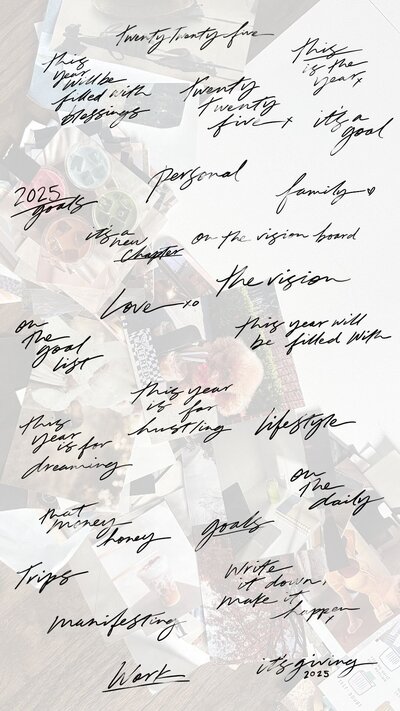 Twenty Twenty-five
this
year
will be
filled with
blessings
twenty
twenty
five x
this
is the
year x
it's a
goal
2025
goals
personal
family
it's a
new
chapter
on the vision board
the vision
Love xo
on
the
goal
list
this year will
be filled with
this year
is for
hustling
this
year
is for
dreaming
lifestyle
on
the
daily
that
money
honey
goals
Trips
Write
it down,
make it
happen
manifesting
Work
it's giving
2025